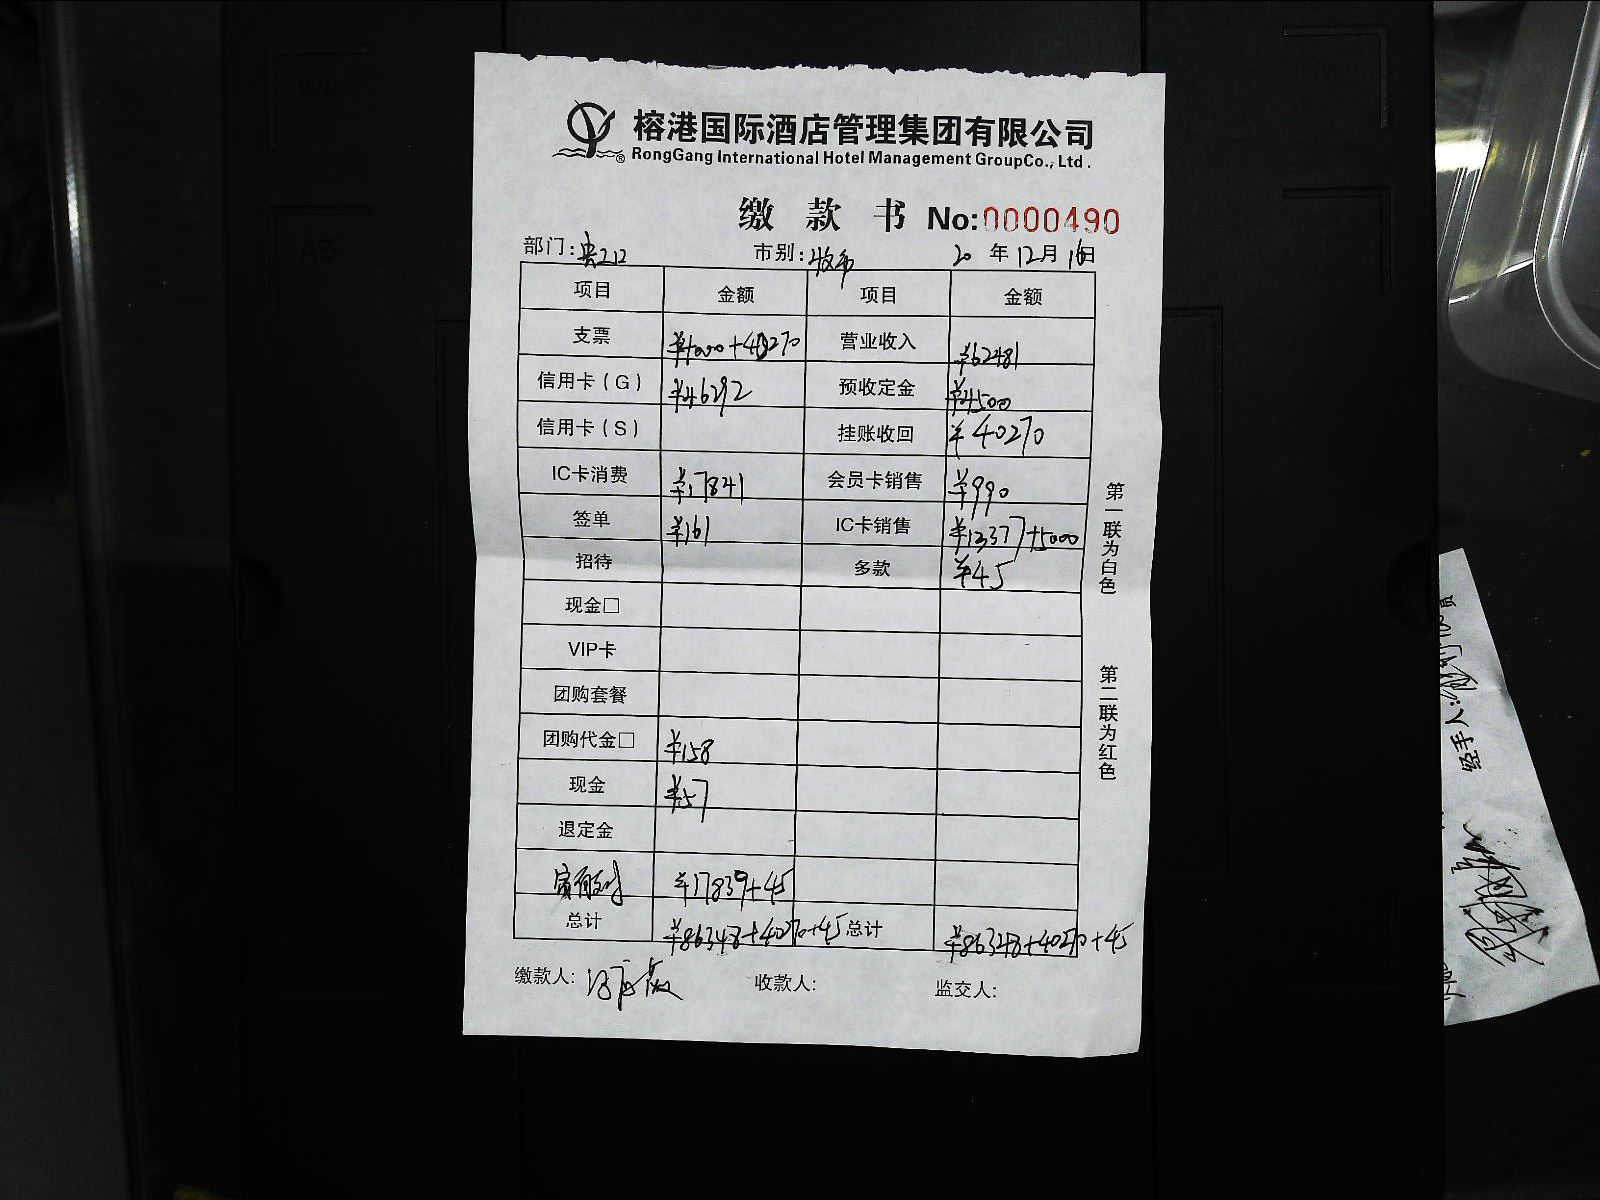 榕港国际酒店管理集团有限公司
RongGang International Hotel Management GroupCo., Ltd.
缴款书 No:0000490
部门: 市别:收市 20年12月16日
项目 金额 项目 金额
支票 ¥4000+40270 营业收入 ¥62481
信用卡(G) ¥46292 预收定金 ¥4500
信用卡(S) 挂账收回 ¥40270
IC卡消费 ¥17841 会员卡销售 ¥990
签单 ¥161 IC卡销售 ¥13377+5000
招待 多款 ¥45
现金□
VIP卡
团购套餐
团购代金□ ¥158
现金 ¥57
退定金
¥17839+45
总计 ¥86348+40270+45 总计 ¥86348+40270+45
缴款人: 收款人: 监交人:
第一联为白色
第二联为红色
经手人:
A4
A5